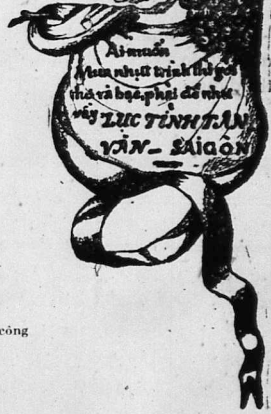 Ai muốn
Mua nhựt trình thì gởi
thơ và bạc, phải đề như
vầy LỤC TỈNH TÂN
VĂN - SÀIGÒN
công